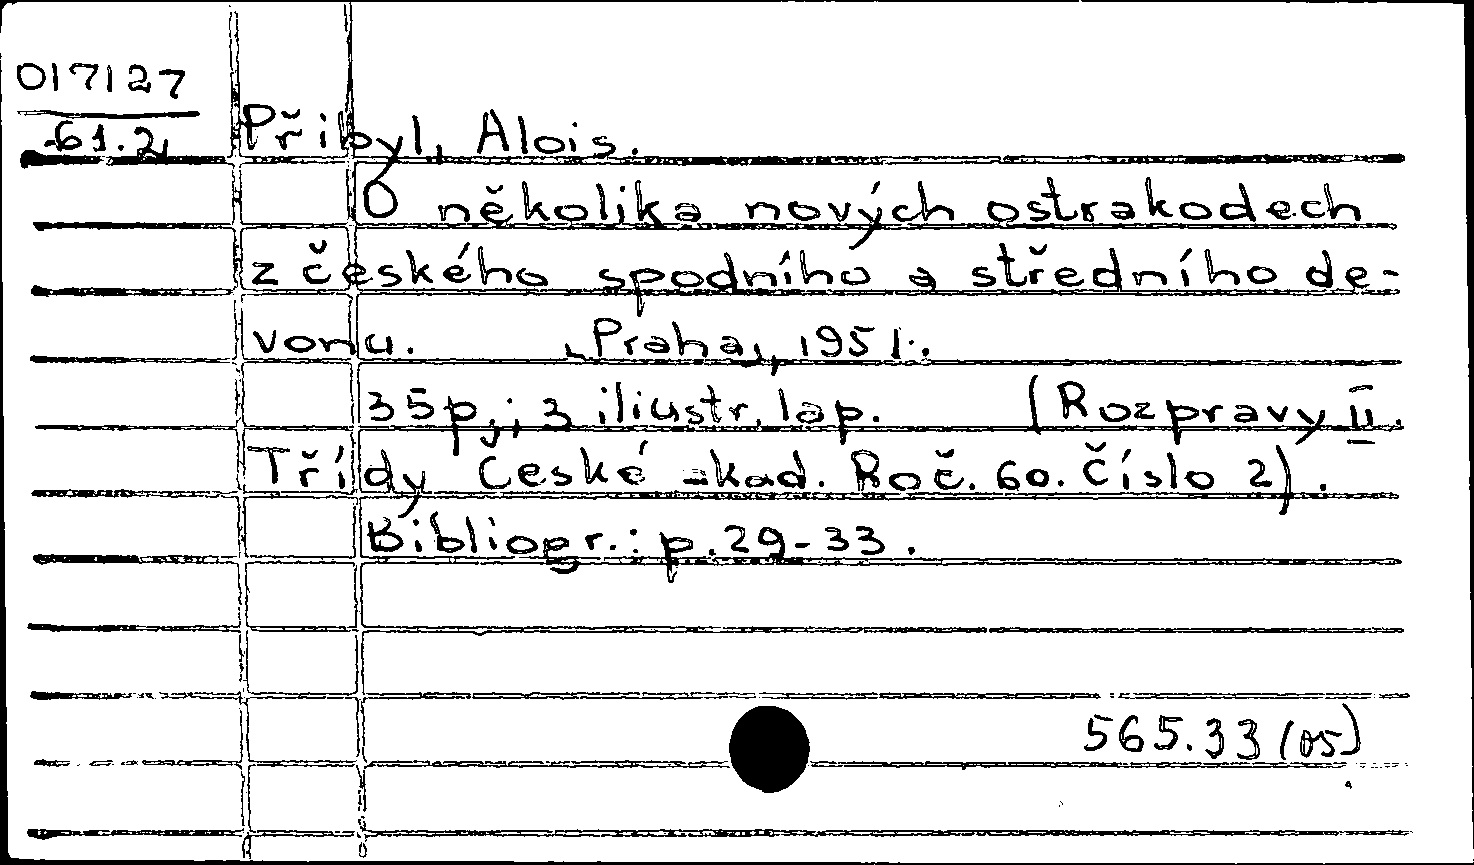 017127
61.2
Přibyl, Alois.
O několika nových ostrakodech
z českého spodního a středního de-
vonu. [Praha], 1951.
35p.; 3 iliustr. lap. (Rozpravy II.
Třídy České akad. Roč. 60. Číslo 2).
Bibliogr.: p. 29-33.
565.33(05)